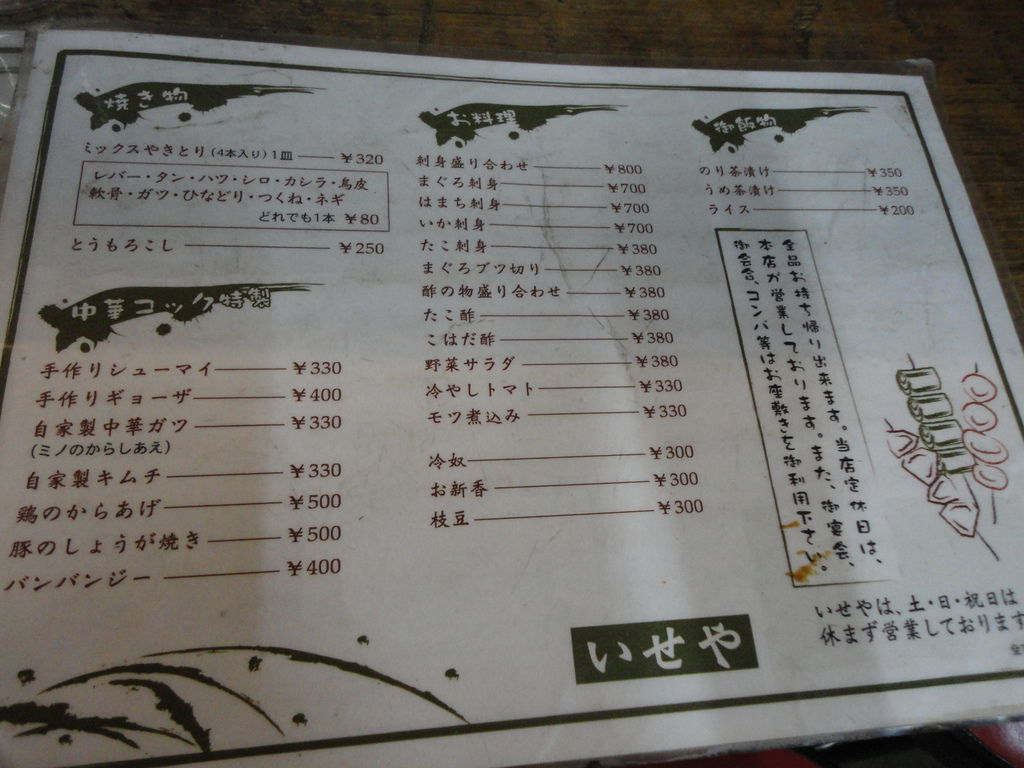 焼き物
ミックスやきとり(4本入り)1皿 ¥320
レバー・タン・ハツ・シロ・カシラ・鳥皮
軟骨・ガツ・ひなどり・つくね・ネギ
どれでも1本 ¥80
とうもろこし ¥250
中華コック特製
手作りシューマイ ¥330
手作りギョーザ ¥400
自家製中華ガツ ¥330
(ミノのからしあえ)
自家製キムチ ¥330
鶏のからあげ ¥500
豚のしょうが焼き ¥500
バンバンジー ¥400
お料理
刺身盛り合わせ ¥800
まぐろ刺身 ¥700
はまち刺身 ¥700
いか刺身 ¥700
たこ刺身 ¥380
まぐろブツ切り ¥380
酢の物盛り合わせ ¥380
たこ酢 ¥380
こはだ酢 ¥380
野菜サラダ ¥380
冷やしトマト ¥330
モツ煮込み ¥330
冷奴 ¥300
お新香 ¥300
枝豆 ¥300
御飯物
のり茶漬け ¥350
うめ茶漬け ¥350
ライス ¥200
全品お持ち帰り出来ます。当店定休日は、
本店が営業しております。また、御宴会、
御会合、コンパ等はお座敷を御利用下さい。
いせやは、土・日・祝日は
休まず営業しております
いせや